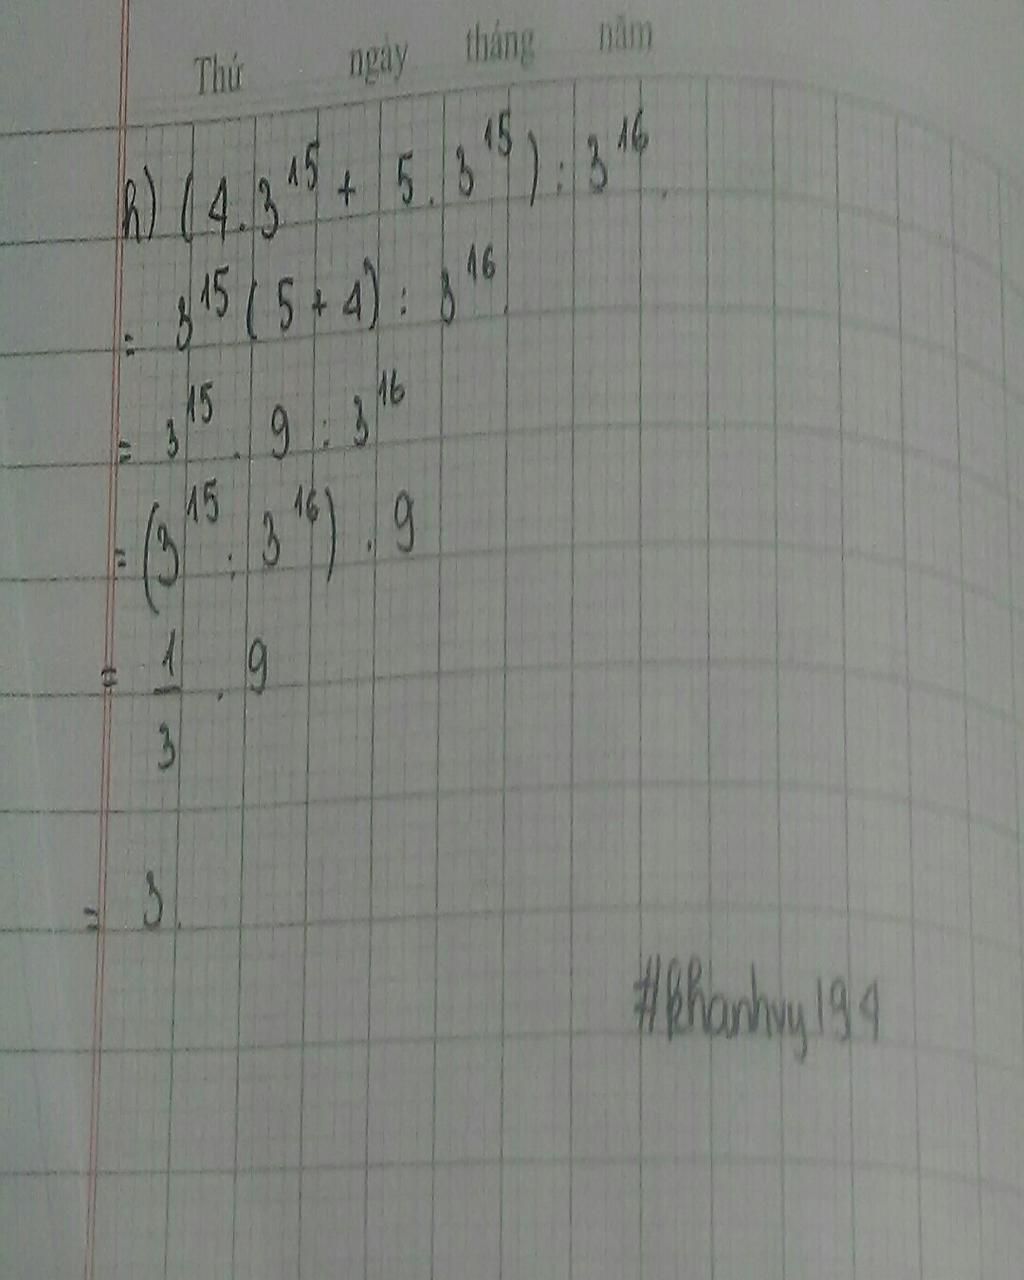 Thứ ngày tháng năm
h) (4.3¹⁵ + 5.3¹⁵) : 3¹⁶.
= 3¹⁵(5+4) : 3¹⁶.
= 3¹⁵ . 9 : 3¹⁶
= (3¹⁵ : 3¹⁶) . 9
= 1/3 . 9
= 3.
#khanhvy194